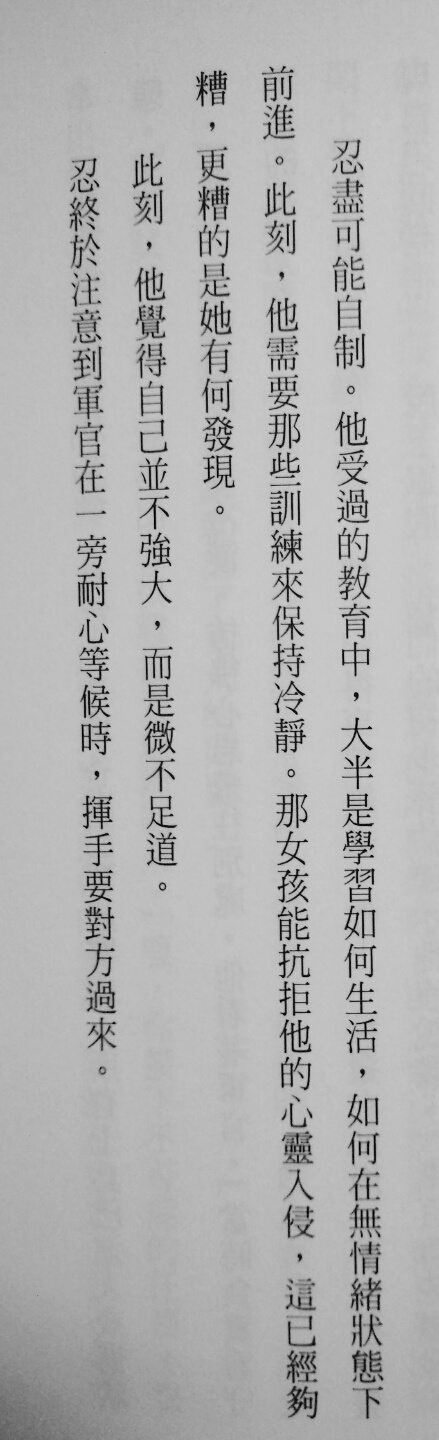 忍盡可能自制。他受過的教育中，大半是學習如何生活，如何在無情緒狀態下
前進。此刻，他需要那些訓練來保持冷靜。那女孩能抗拒他的心靈入侵，這已經夠
糟，更糟的是她有何發現。
此刻，他覺得自己並不強大，而是微不足道。
忍終於注意到軍官在一旁耐心等候時，揮手要對方過來。